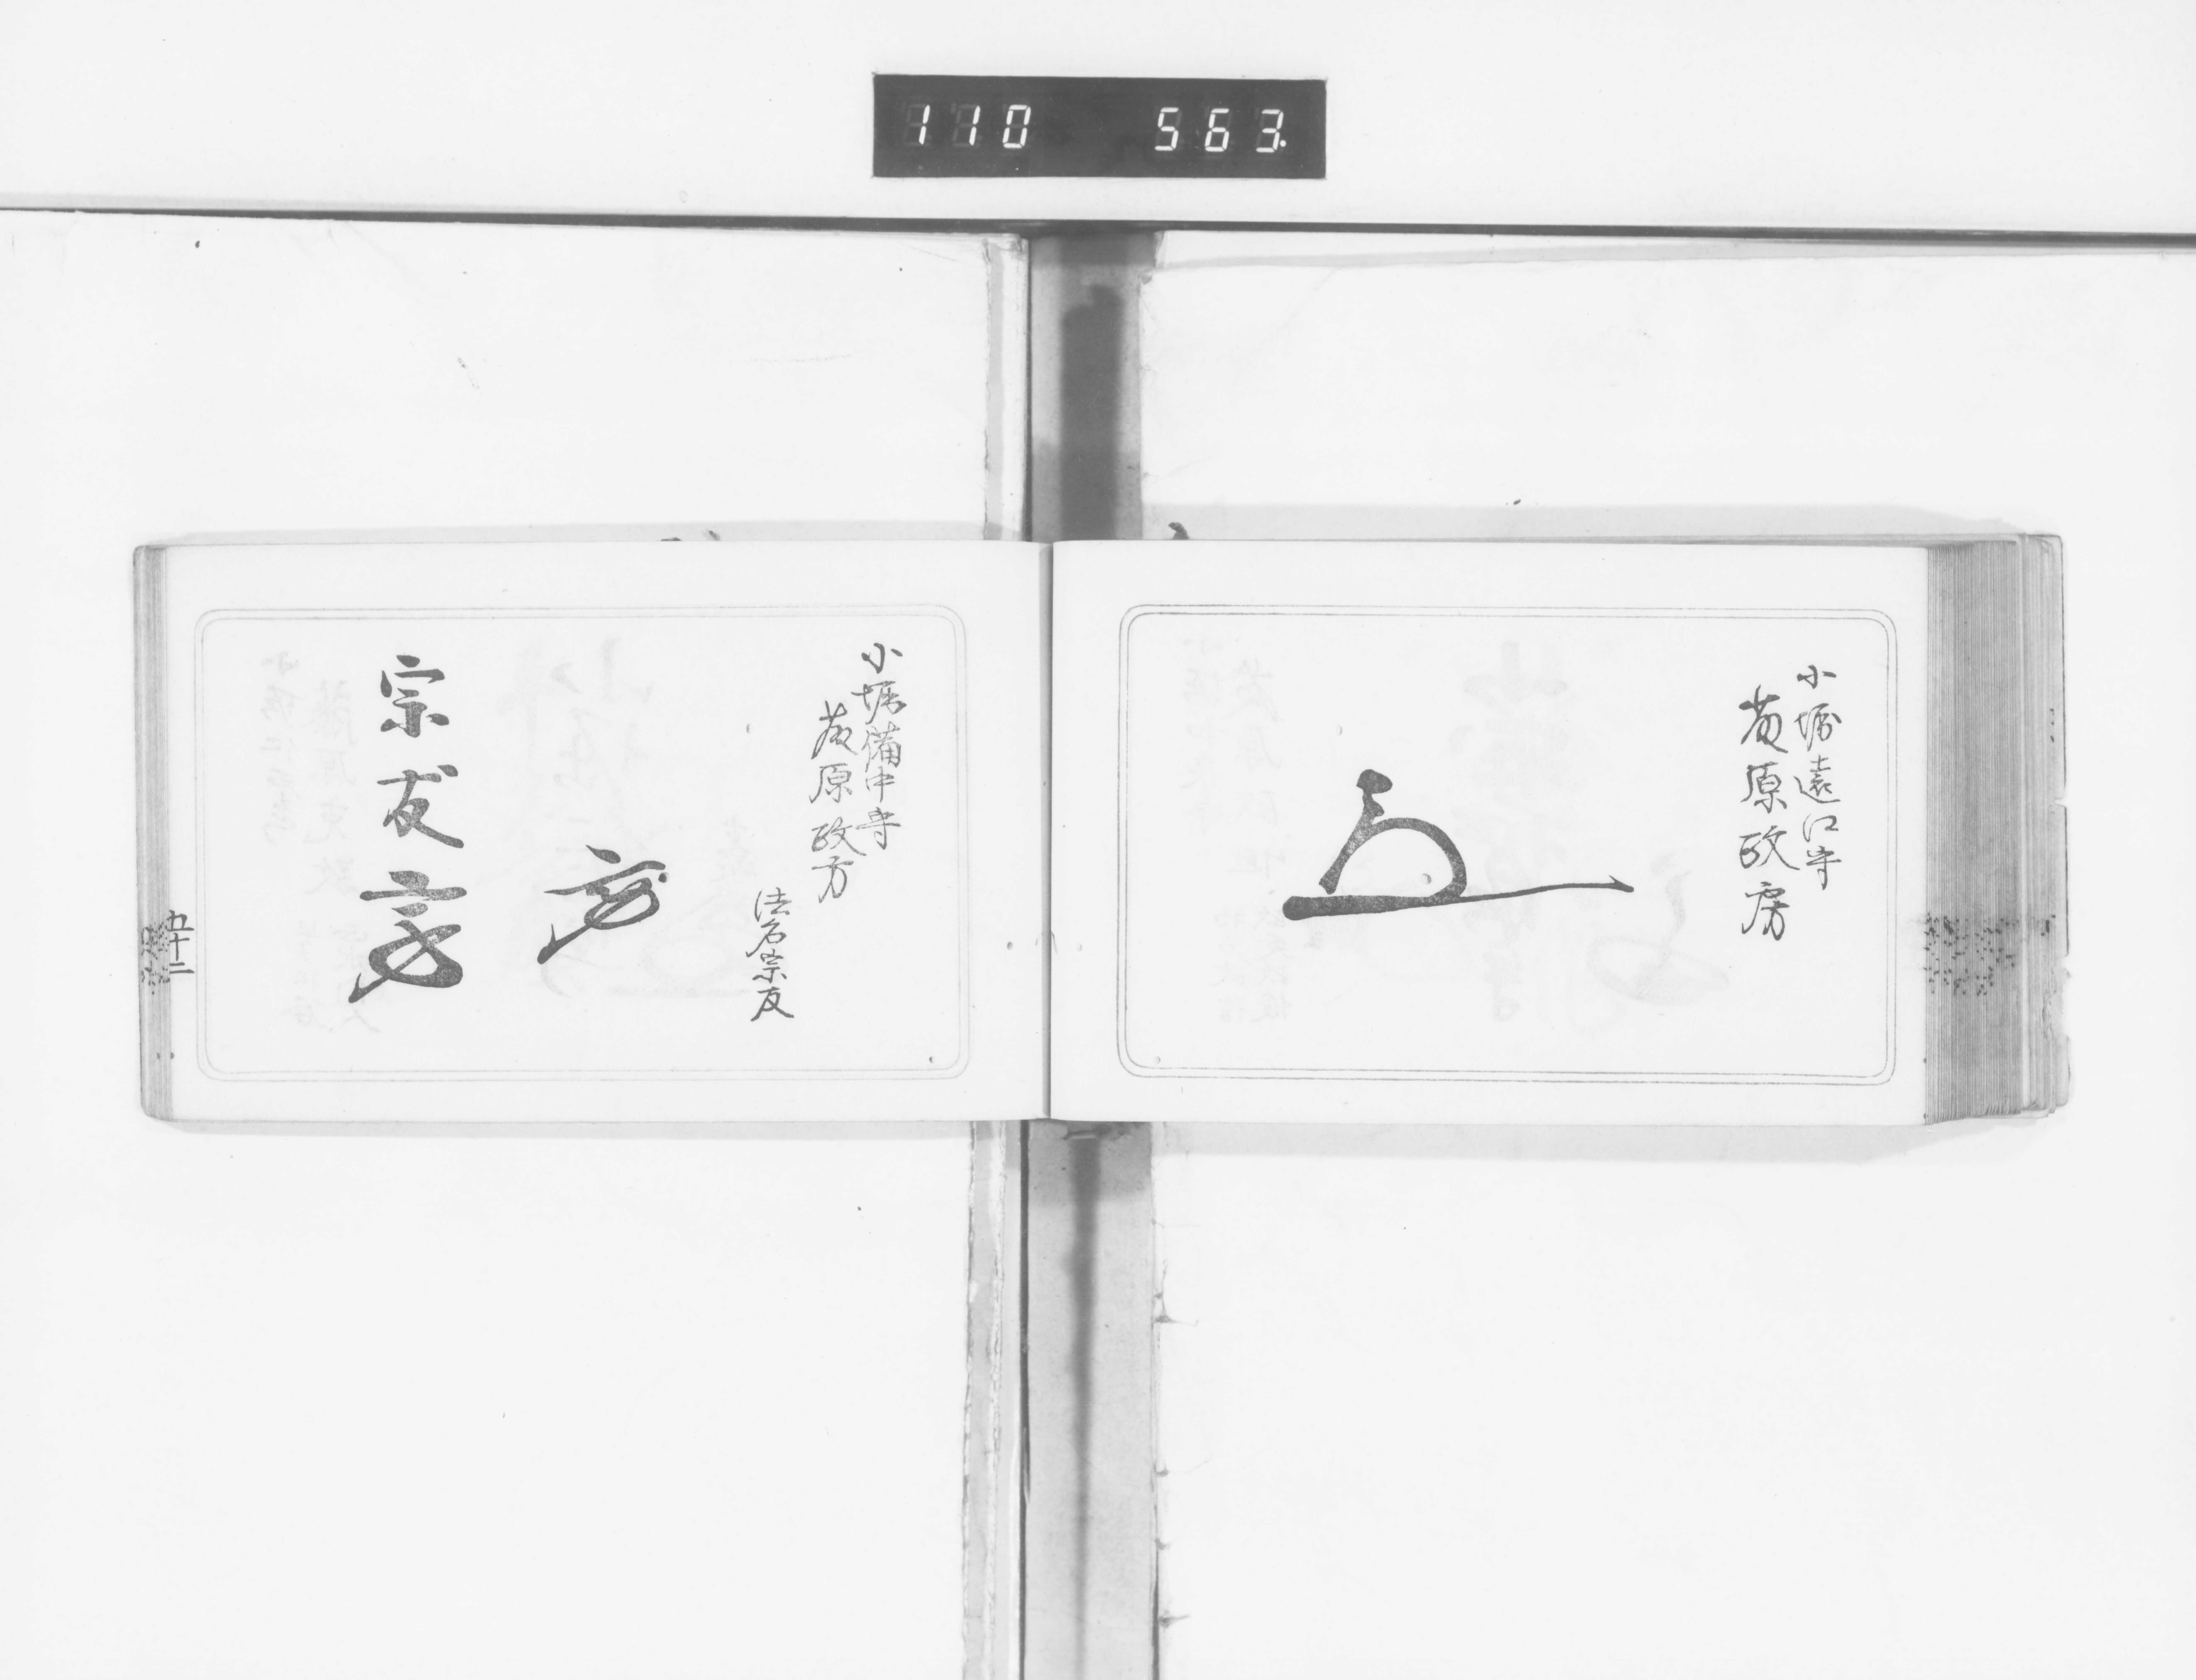 110 563
小堀遠江守
藤原政房
小堀備中守
藤原政方
法名宗友
宗友
五十二